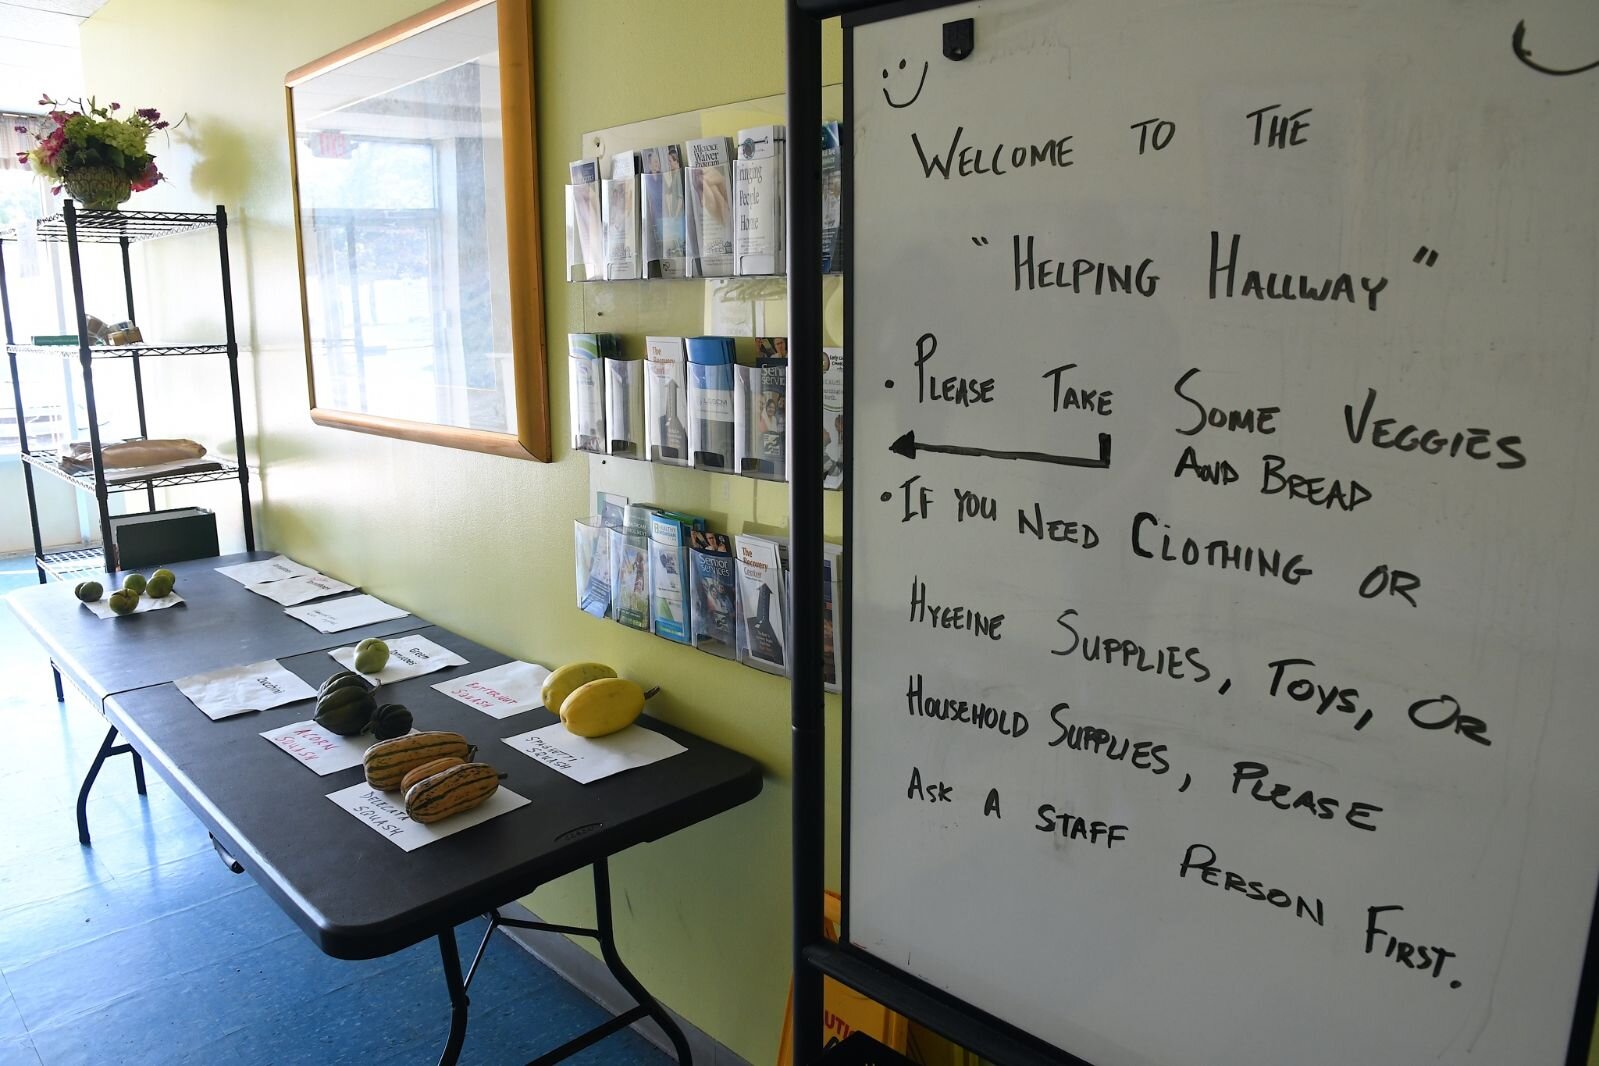 WELCOME TO THE
"HELPING HALLWAY"
• PLEASE TAKE SOME VEGGIES
AND BREAD
• IF YOU NEED CLOTHING OR
HYGEINE SUPPLIES, TOYS, OR
HOUSEHOLD SUPPLIES, PLEASE
ASK A STAFF PERSON FIRST.
MI Choice
Waiver
Program
People
Home
The
Recovery
Senior
services
The
Recovery
Center
Zucchini
Green
Tomatoes
BUTTERNUT
SQUASH
ACORN
SQUASH
SPAGHETTI
SQUASH
DELECATA
SQUASH